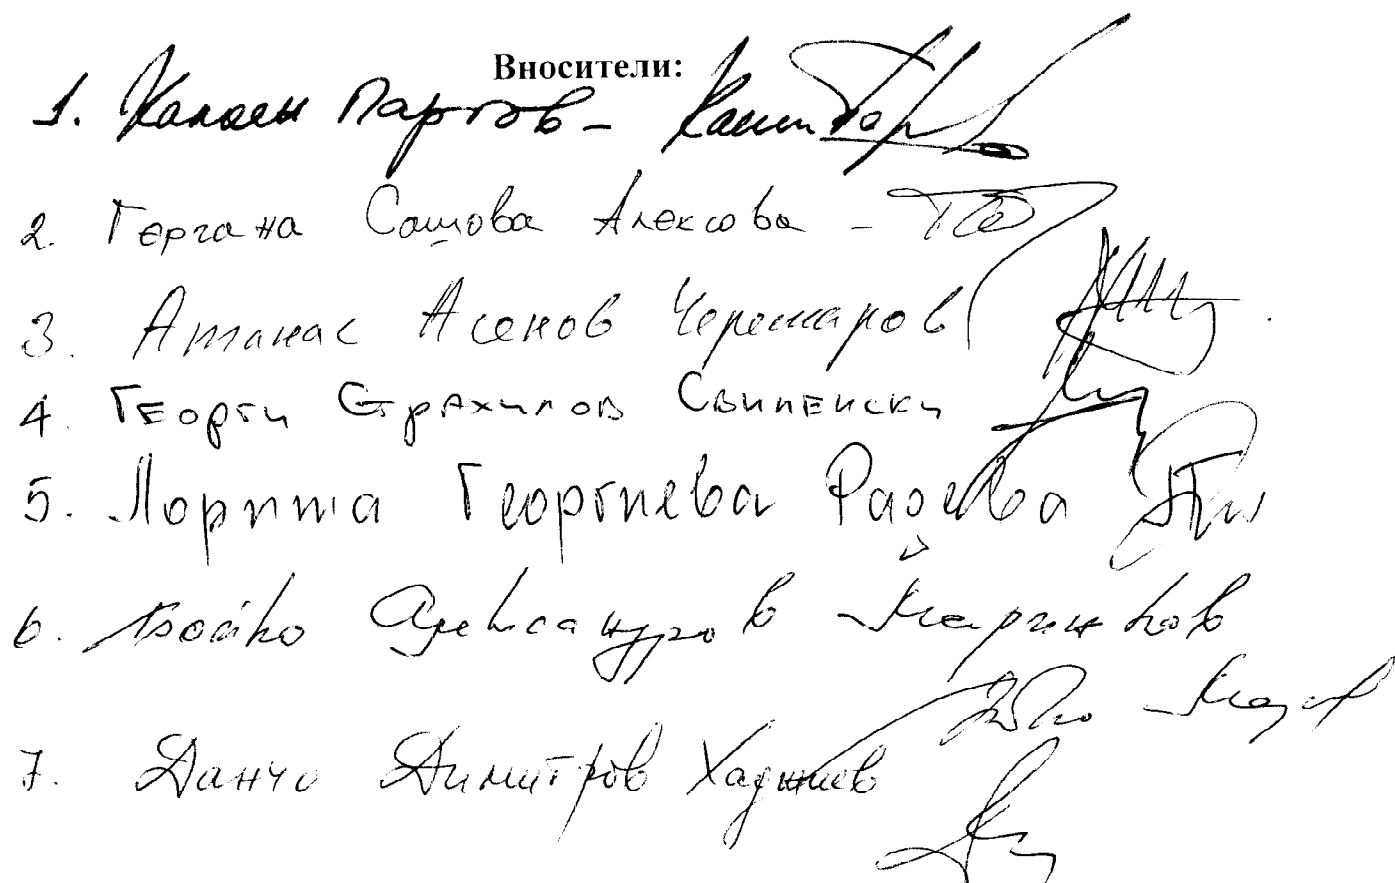 Вносители:
1. Калоян Паргов -
2. Гергана Сашова Алексова -
3. Атанас Асенов Черешаров
4. Георги Страхилов Свиленски
5. Лорита Георгиева Радева
6. Бойко Александров Маринков
7. Данчо Димитров Хаджиев